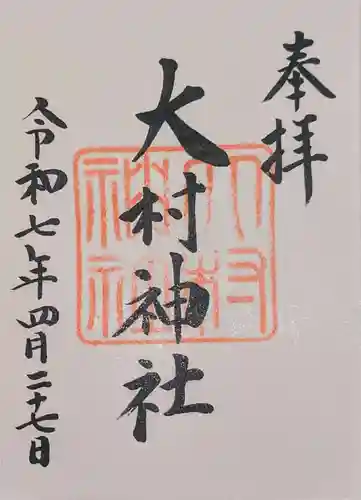 奉拝
大村神社
大村神社
令和七年四月二十七日